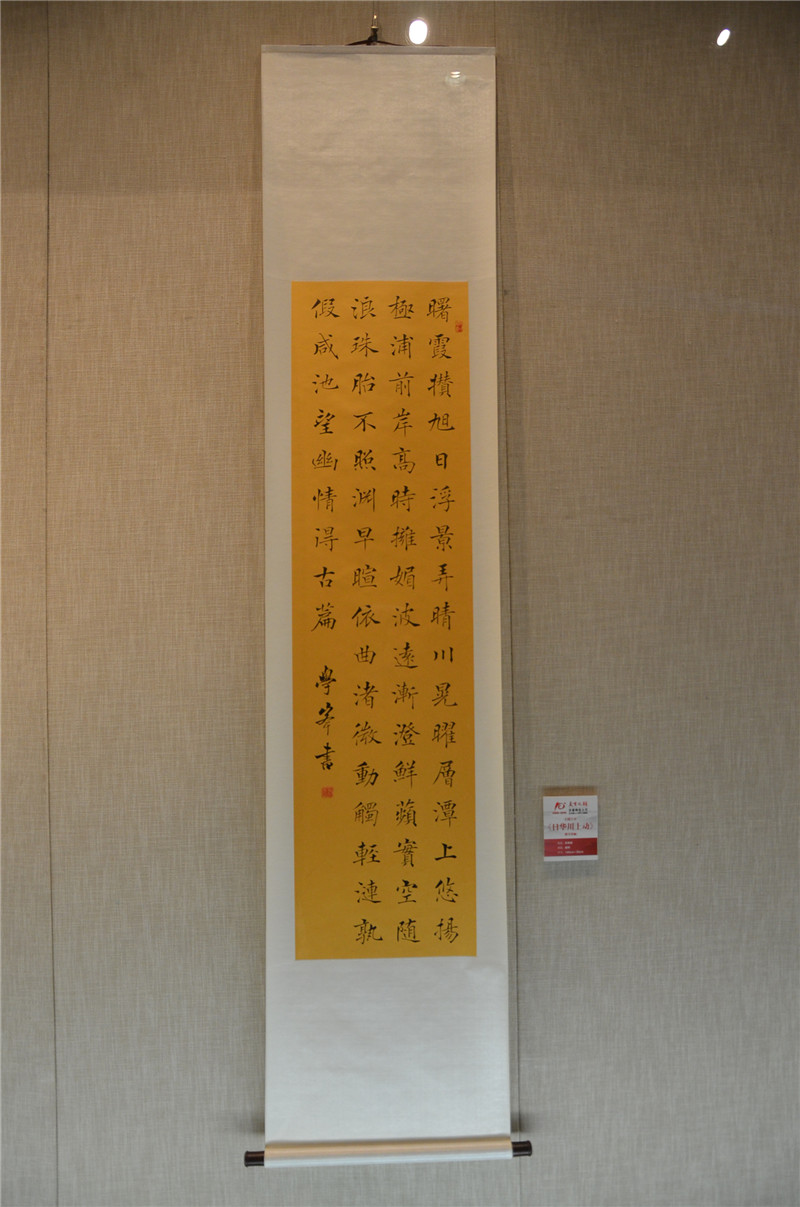 曙霞攅旭日浮景弄晴川晃曜層潭上悠揚
極浦前岸高時擁媚波遠漸澄鮮蘋實空随
浪珠胎不照渊早暄依曲渚微動觸輕漣孰
假咸池望幽情得古篇
學峯書
《日华川上动》